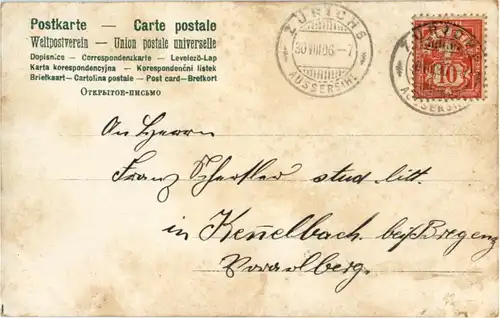 Postkarte — Carte postale
Weltpostverein — Union postale universelle
Dopisnice — Correspondenzkarte — Levelező-Lap
Karta korespondencyjna — Korespondenční lístek
Briefkaart — Cartolina postale — Post card — Brefkort
Открытое-письмо
ZÜRICH 6
30 VIII 06 - 7
AUSSERSIHL
ZÜRICH
10
AUSSERSIHL
An Herrn
Franz stud. litt.
in Kennelbach bei Bregenz
Vorarlberg.